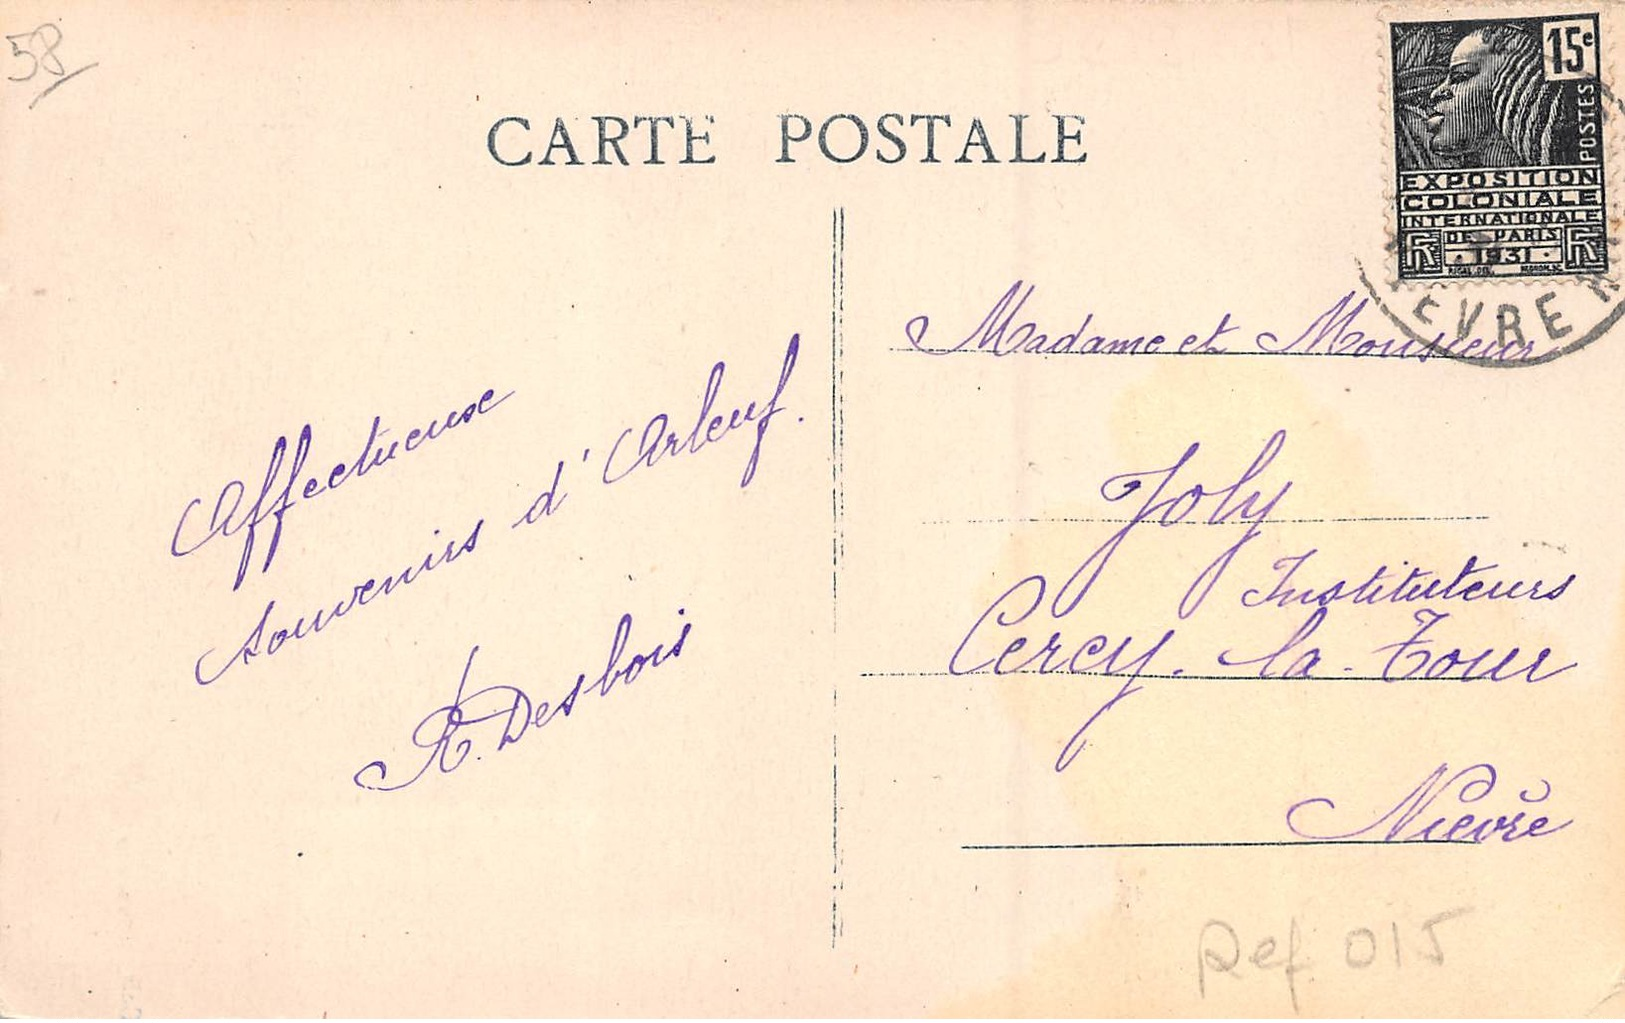 58
CARTE POSTALE
15c
POSTES
EXPOSITION
COLONIALE
INTERNATIONALE
DE PARIS
RF · 1931 · RF
IEVRE
Affectueuse
souvenirs d'Arleuf.
R. Desbois
Madame et Monsieur
Joly
Instituteurs
Cercy-la-Tour
Nièvre
Ref 015